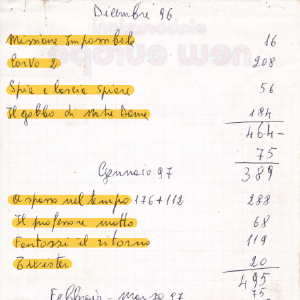 Dicembre 96
Missione Impossibile 16
Corvo 2 208
Spia e lascia Spiare 56
Il gobbo di Notre Dame 184
464-
75
389
Gennaio 97
A spasso nel tempo 176+112 288
Il professore matto 68
Fantozzi il ritorno 119
Twister 20
495
75
Febbraio - marzo 97